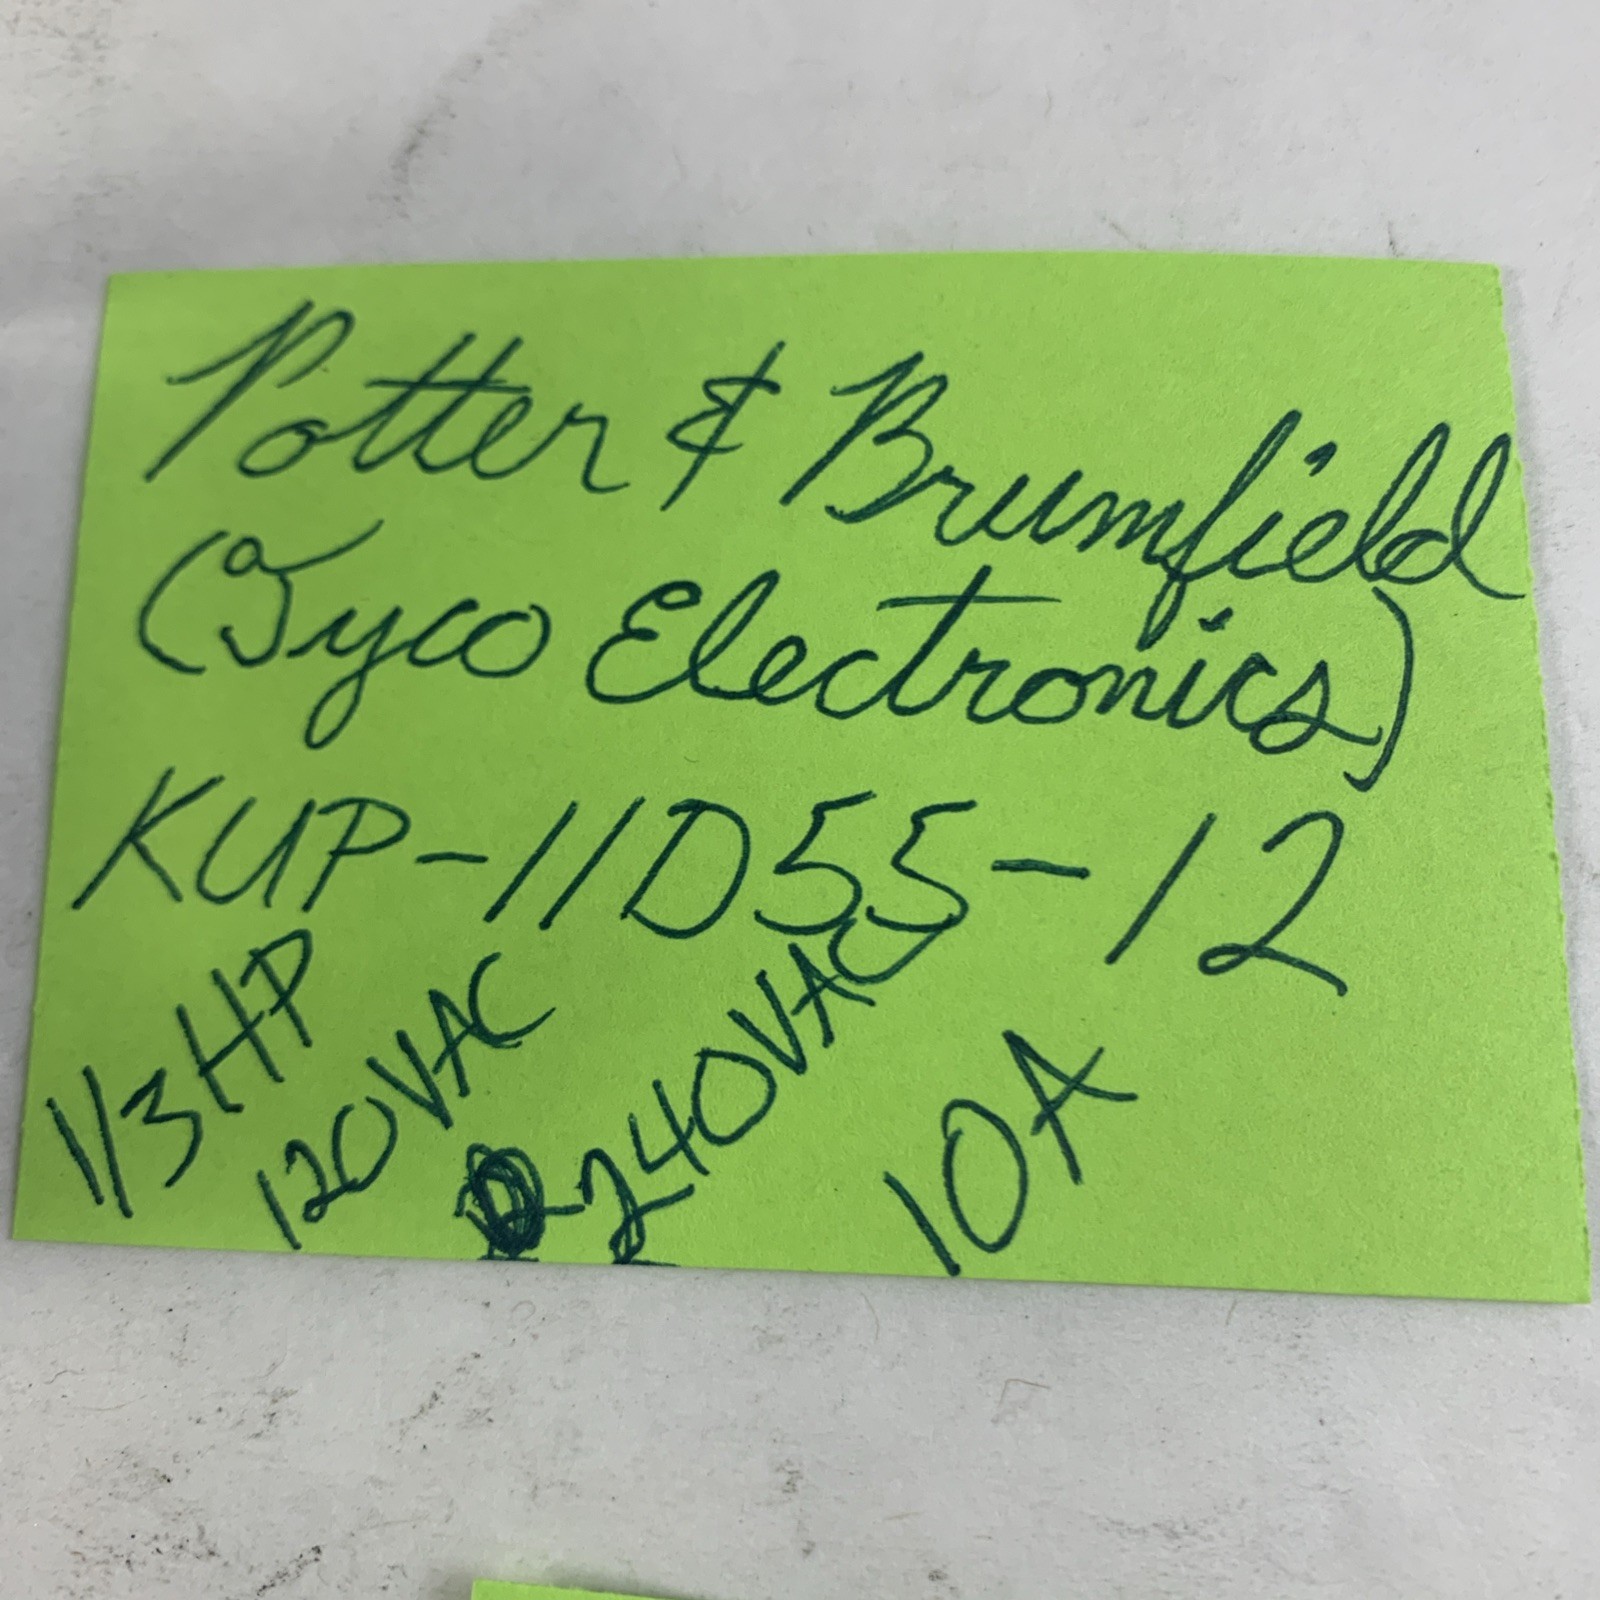 Potter & Brumfield
(Tyco Electronics)
KUP-11D55-12
1/3 HP
120VAC
240VAC
10A